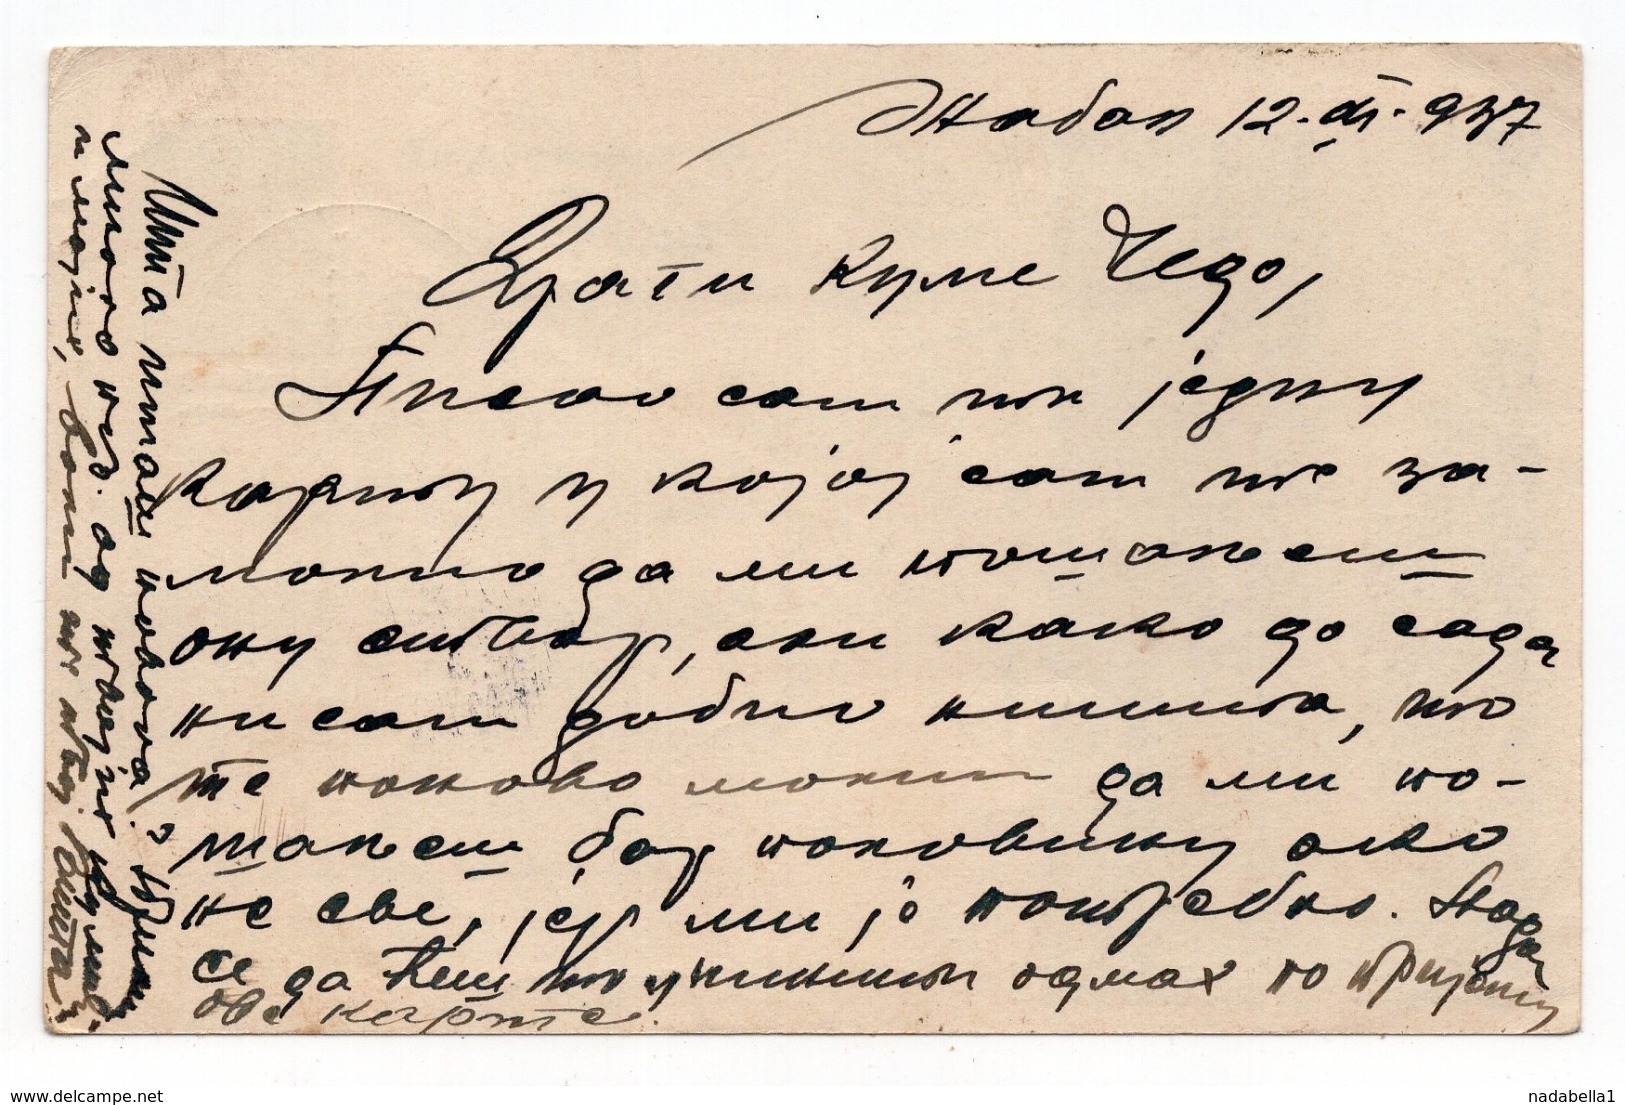 Жабаљ 12. XI. 937
Драги куме Чедо,
Писао сам ти једну
карту у којој сам те за-
молио да ми пошаљеш
ону ствар, али како до сада
нисам добио ништа, то
те поново молим да ми по-
шаљеш бар половину ако
не све, јер ми је потребно. Нада
се да ћеш ти учинити одмах по пријему
ове карте.
Шта имаш новога? Прими
много поз. од твојих кумова
и мојих, воли те твој
nadabella1